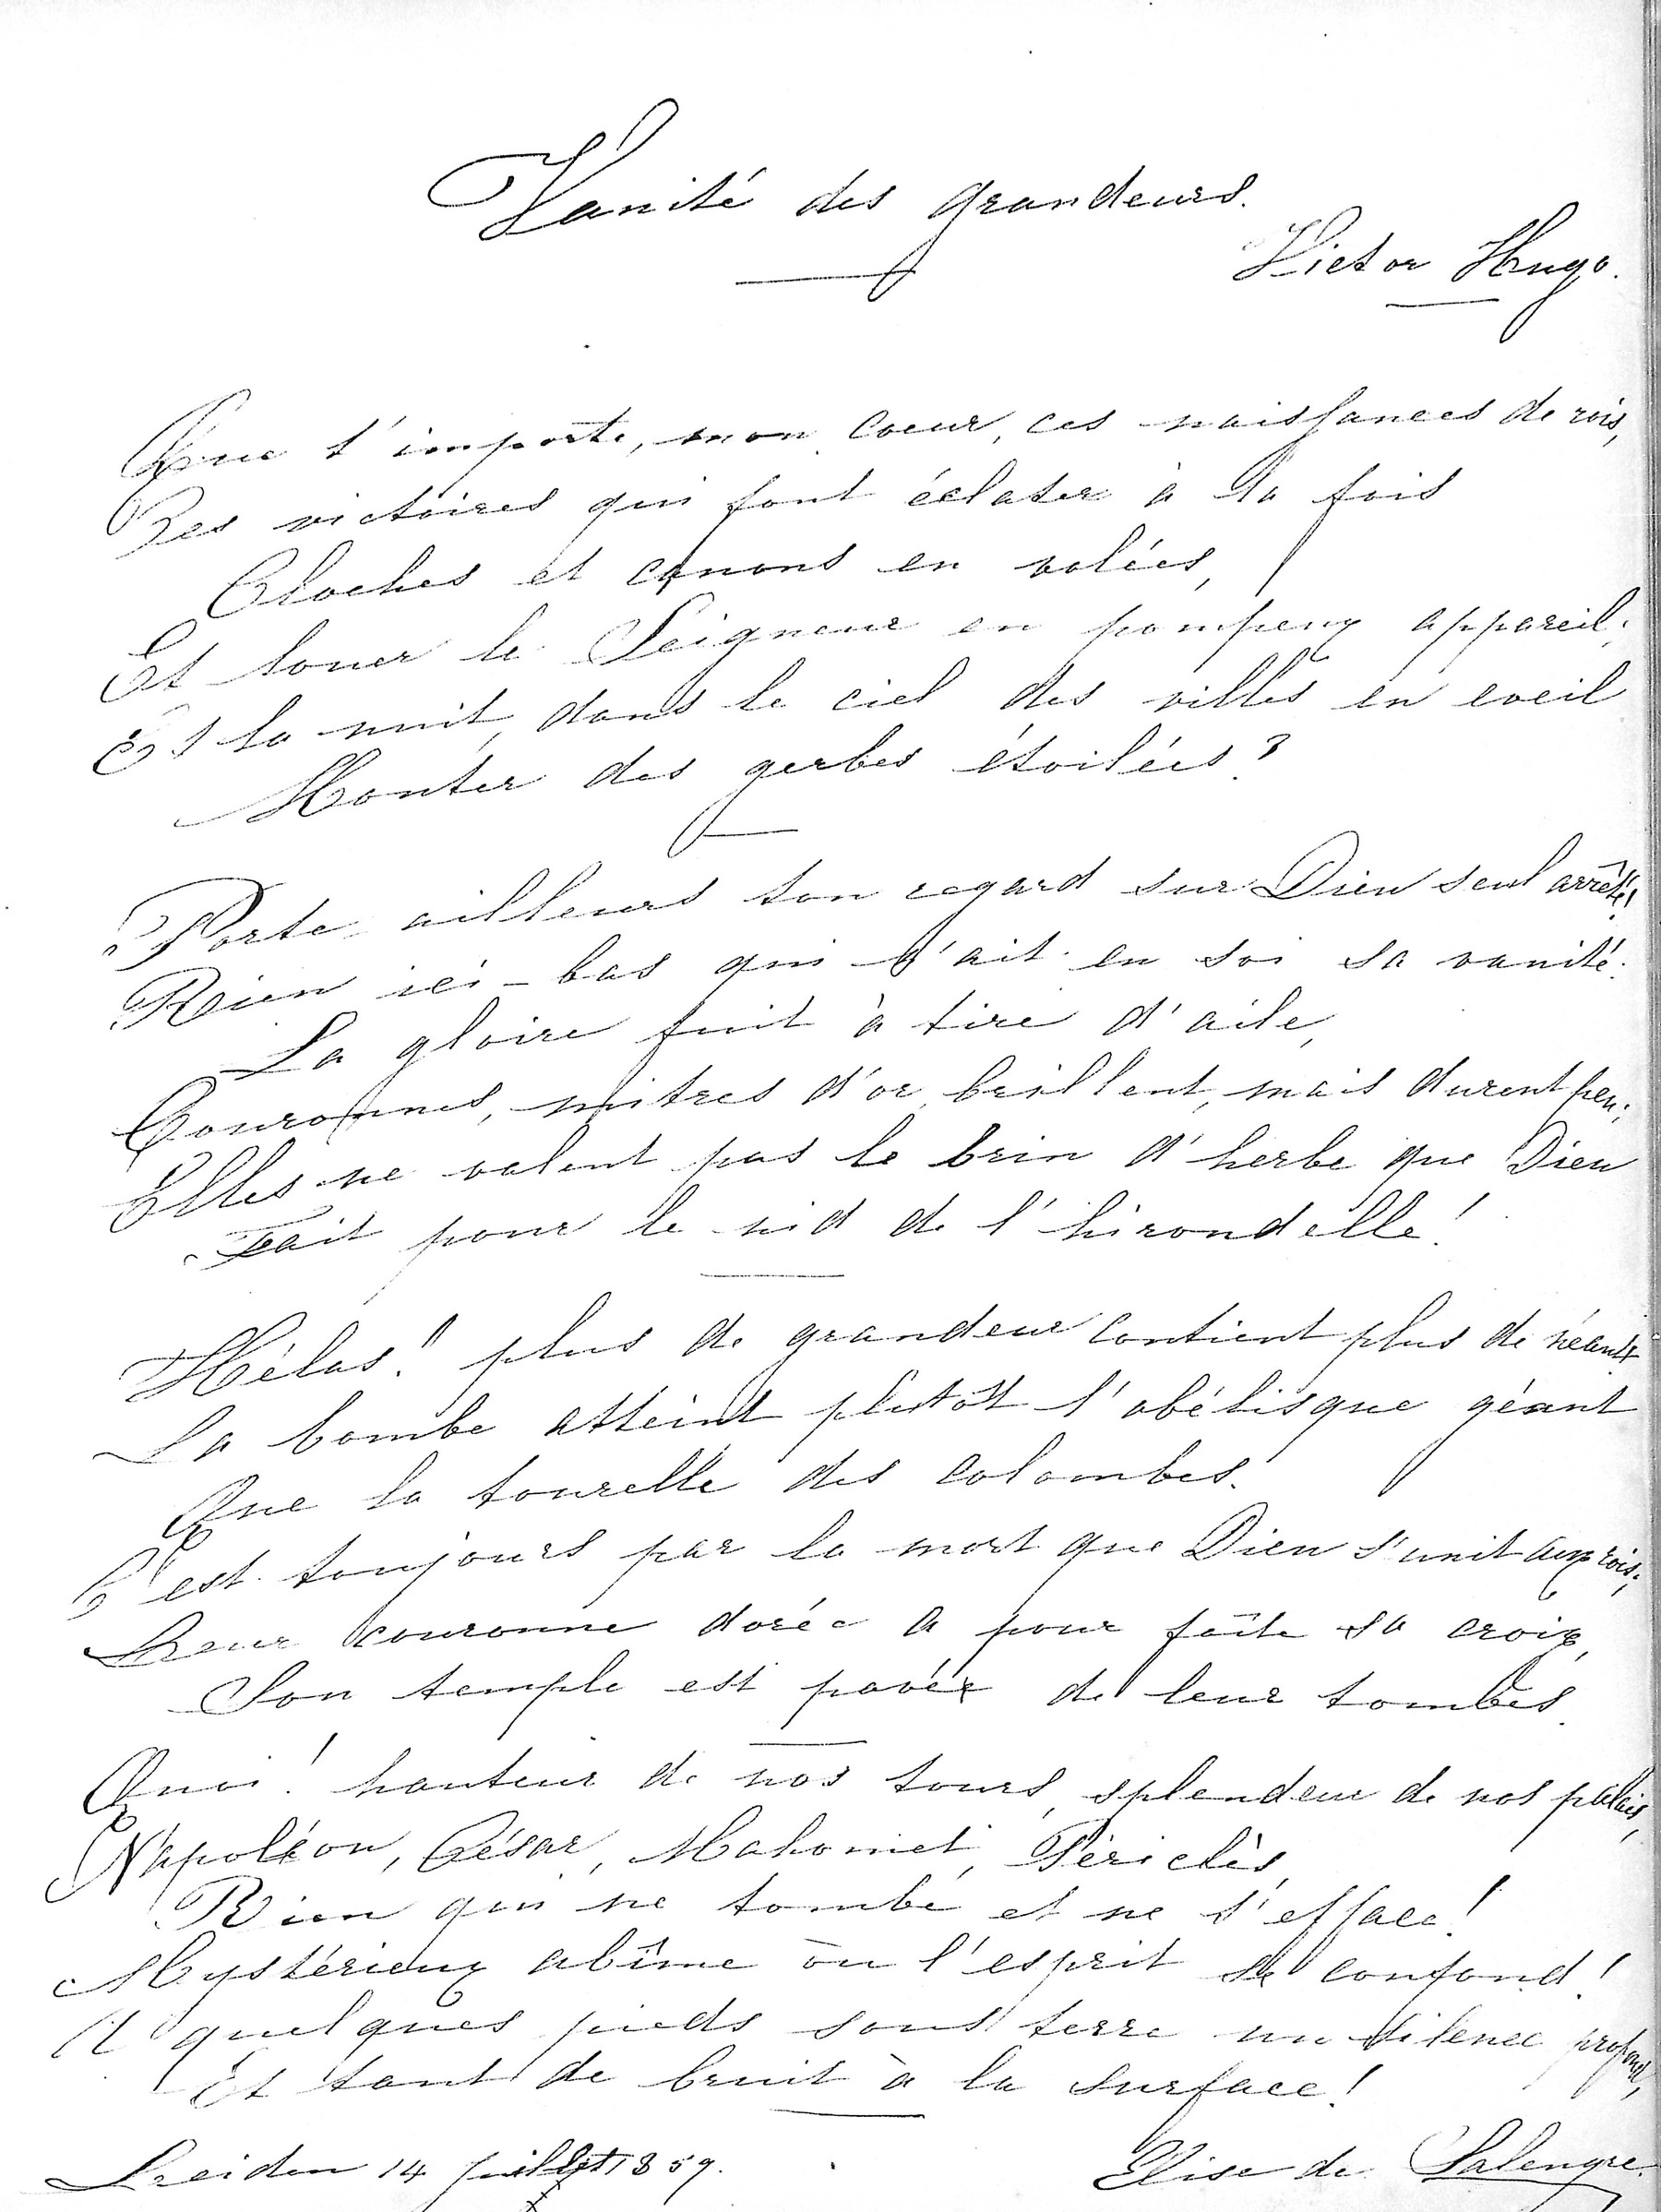 Vanité des grandeurs.
Victor Hugo.
Que t'importe, mon coeur, ces naissances de rois,
Ces victoires qui font éclater à la fois
Cloches et canons en volées,
Et louer le Seigneur en pompeux appareil;
Et la nuit, dans le ciel des villes en eveil
Monter des gerbes étoilées?
Porte ailleurs ton regard sur Dieu seul arrêté!
Rien ici-bas qui n'ait en soi sa vanité.
La gloire fuit à tire d'aile,
Couronnes, mitres d'or brillent, mais durent peu;
Elles ne valent pas le brin d'herbe que Dieu
Fait pour le nid de l'hirondelle!
Hélas! plus de grandeur contient plus de néant
La bombe atteint plutôt l'obélisque géant
Que la tourelle des colombes.
C'est toujours par la mort que Dieu s'unit aux rois;
Leur couronne dorée a pour faîte sa croix,
Son temple est pavée de leur tombes.
Quoi! hauteur de nos tours, splendeur de nos palais,
Napoléon, César, Mahomet, Périclès,
Rien qui ne tombe et ne s'efface!
Mystérieux abîme où l'esprit se confond!
A quelques pieds sous terre un silence profond,
Et tant de bruit à la surface!
Leiden 14 juillet 1859.
Elise de Salengre.